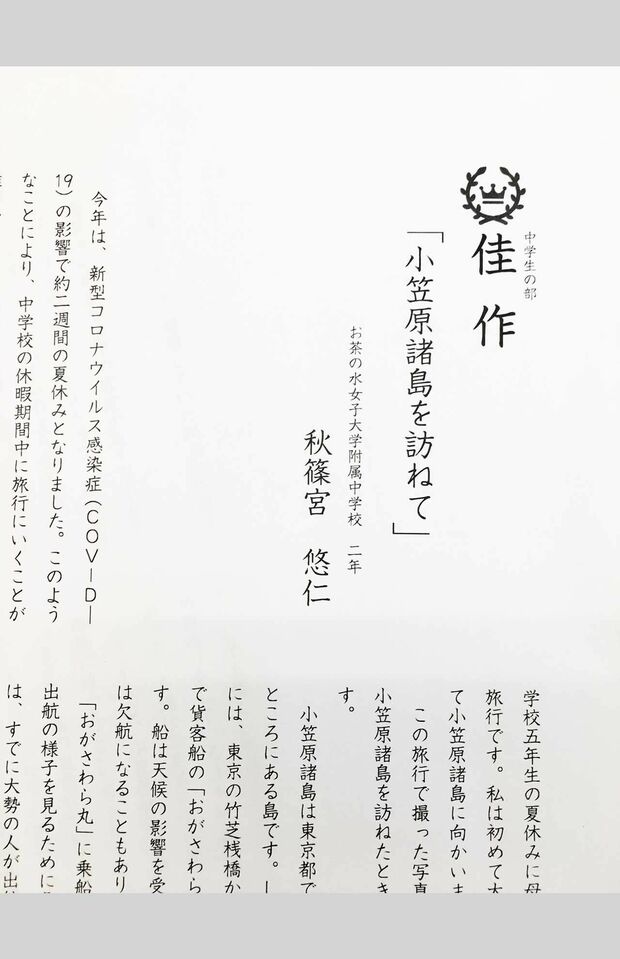 中学生の部
佳作
「小笠原諸島を訪ねて」
お茶の水女子大学附属中学校 二年
秋篠宮 悠仁
今年は、新型コロナウイルス感染症（COVID―
19）の影響で約二週間の夏休みとなりました。このよう
なことにより、中学校の休暇期間中に旅行にいくことが
学校五年生の夏休みに母
旅行です。私は初めて大
て小笠原諸島に向かいま
この旅行で撮った写真
小笠原諸島を訪ねたとき
す。
小笠原諸島は東京都で
ところにある島です。
には、東京の竹芝桟橋か
で貨客船の「おがさわら
す。船は天候の影響を受
は欠航になることもあり
「おがさわら丸」に乗船
出航の様子を見るために
は、すでに大勢の人が出